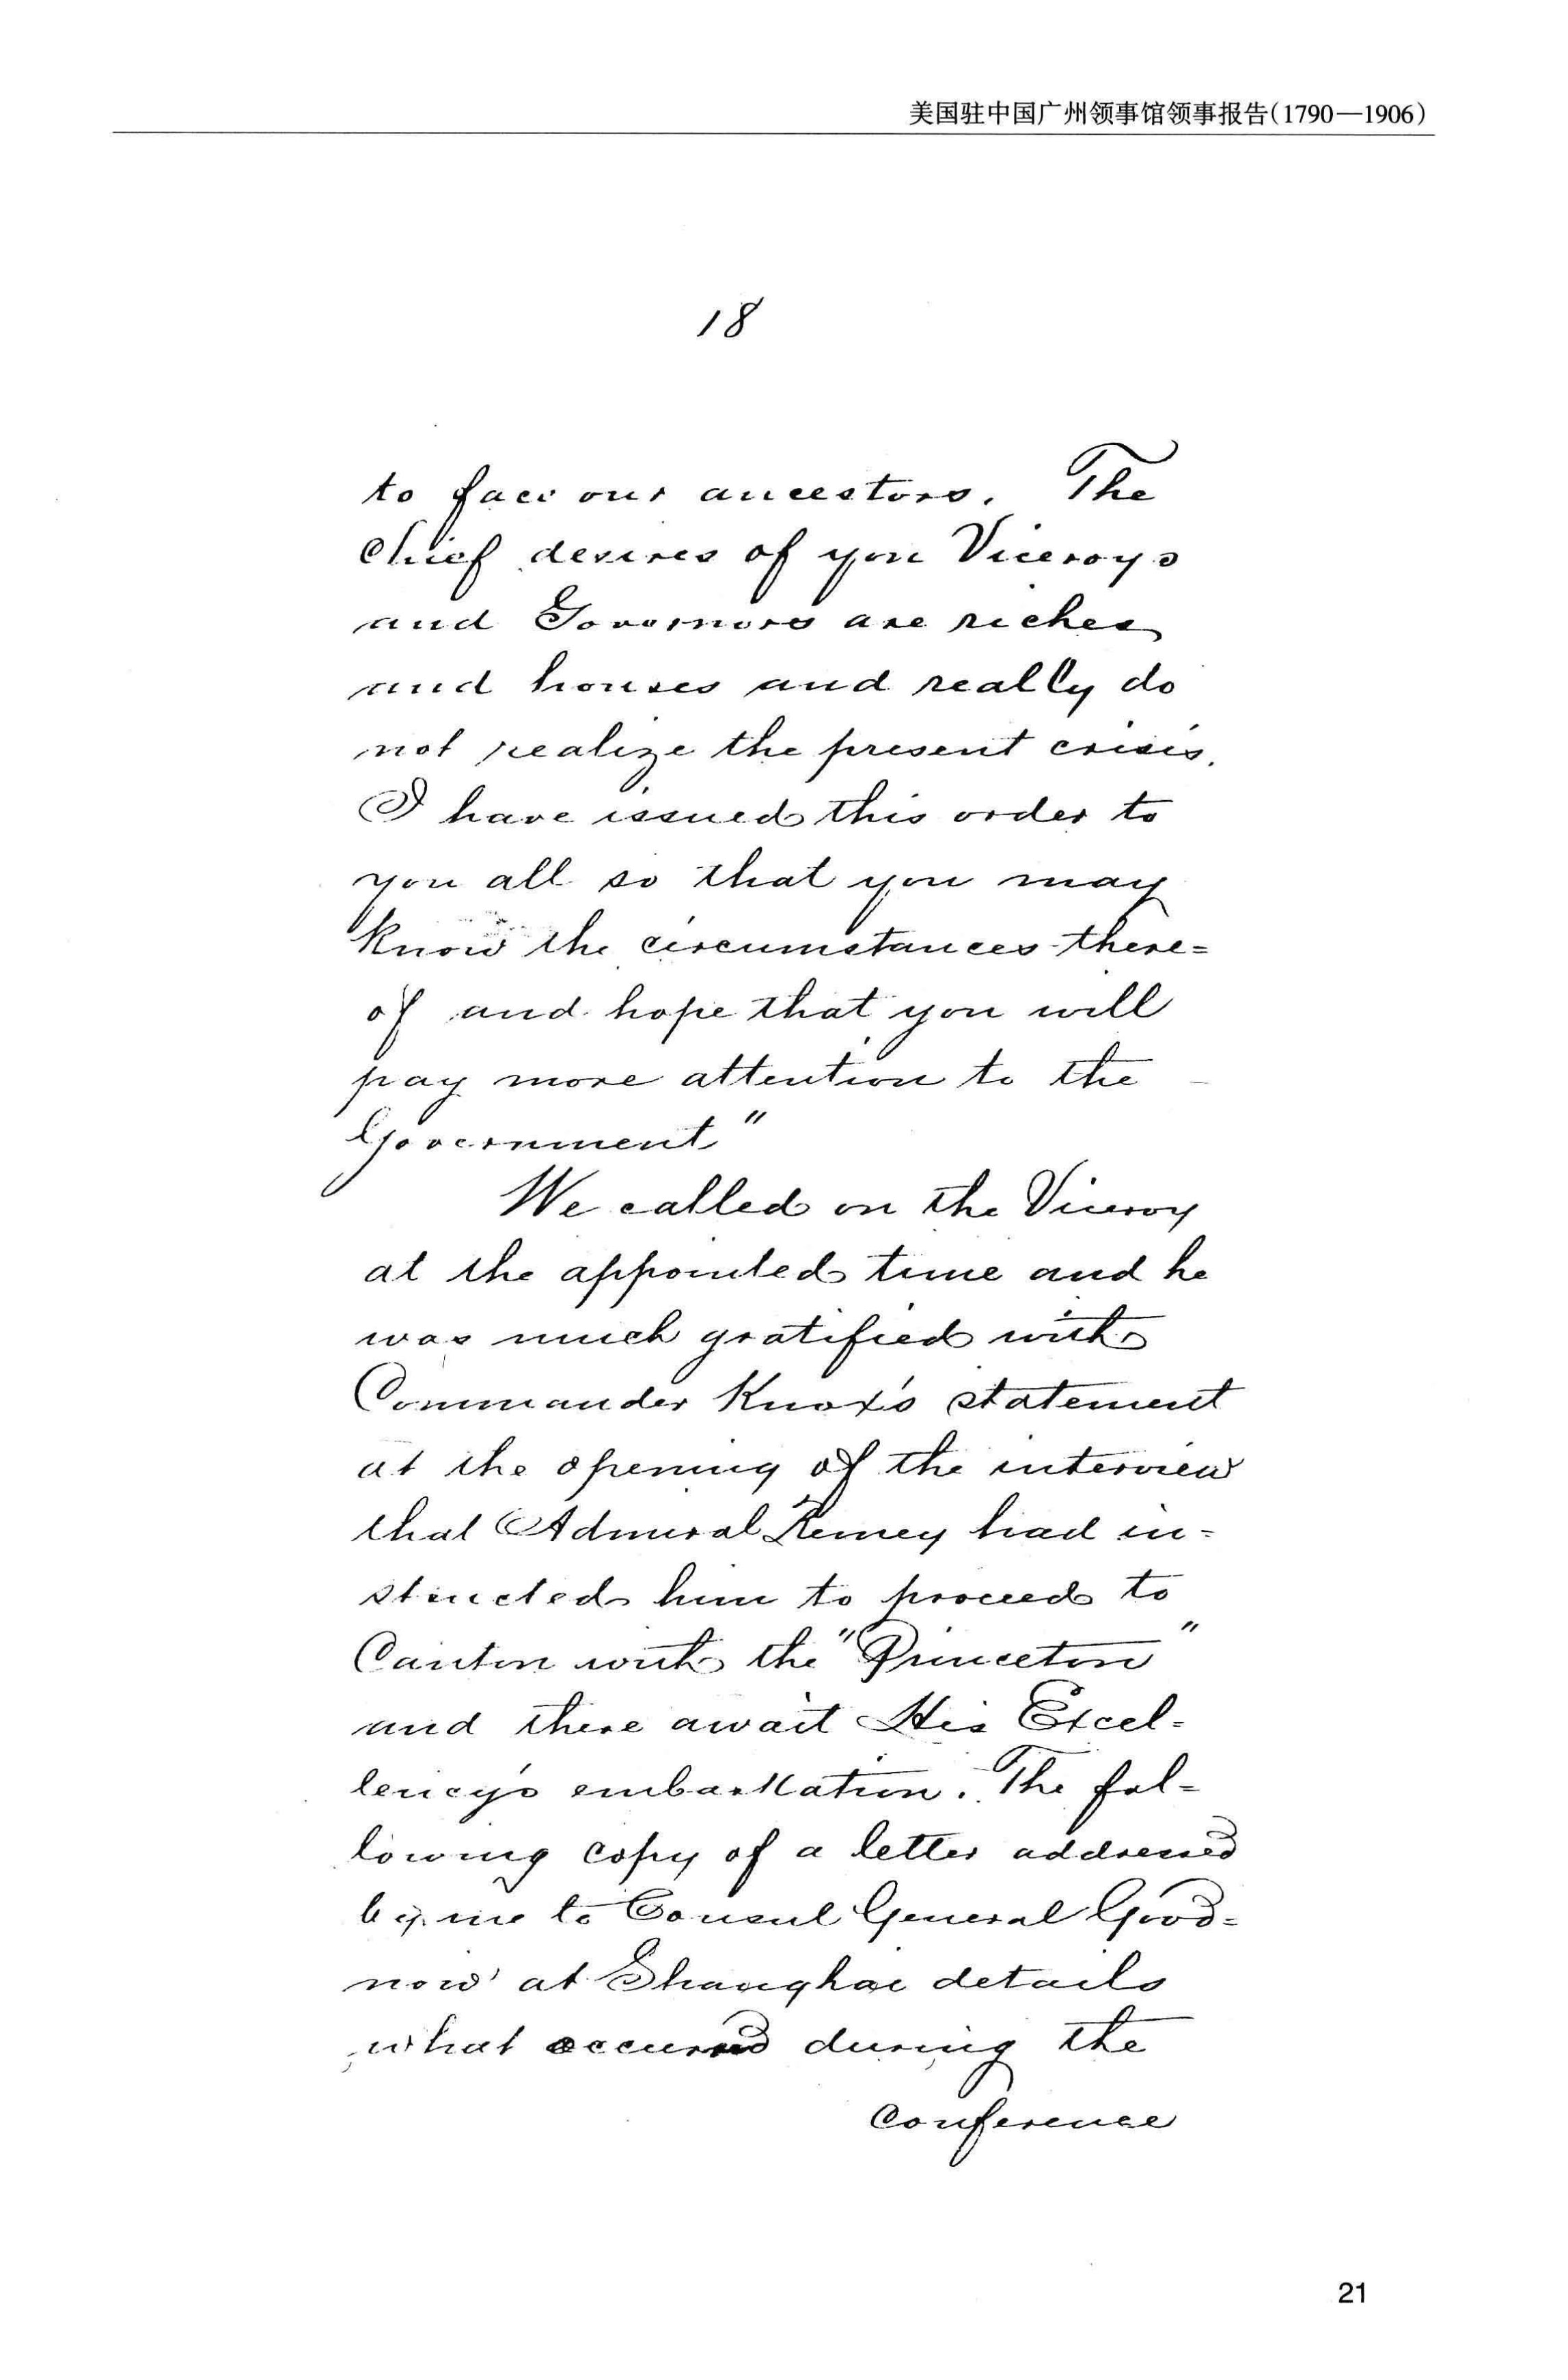 美国驻中国广州领事馆领事报告(1790—1906)
18
to face our ancestors. The
chief desires of you Viceroys
and Governors are riches
and houses and really do
not realize the present crisis.
I have issued this order to
you all so that you may
know the circumstances there=
of and hope that you will
pay more attention to the
Government"
We called on the Viceroy
at the appointed time and he
was much gratified with
Commander Knox's statement
at the opening of the interview
that Admiral Remey had in=
structed him to proceed to
Canton with the "Princeton"
and there await His Excel-
lency's embarkation. The fol=
lowing copy of a letter addressed
by me to Consul General Good=
now at Shanghai details
what occurred during the
conference
21